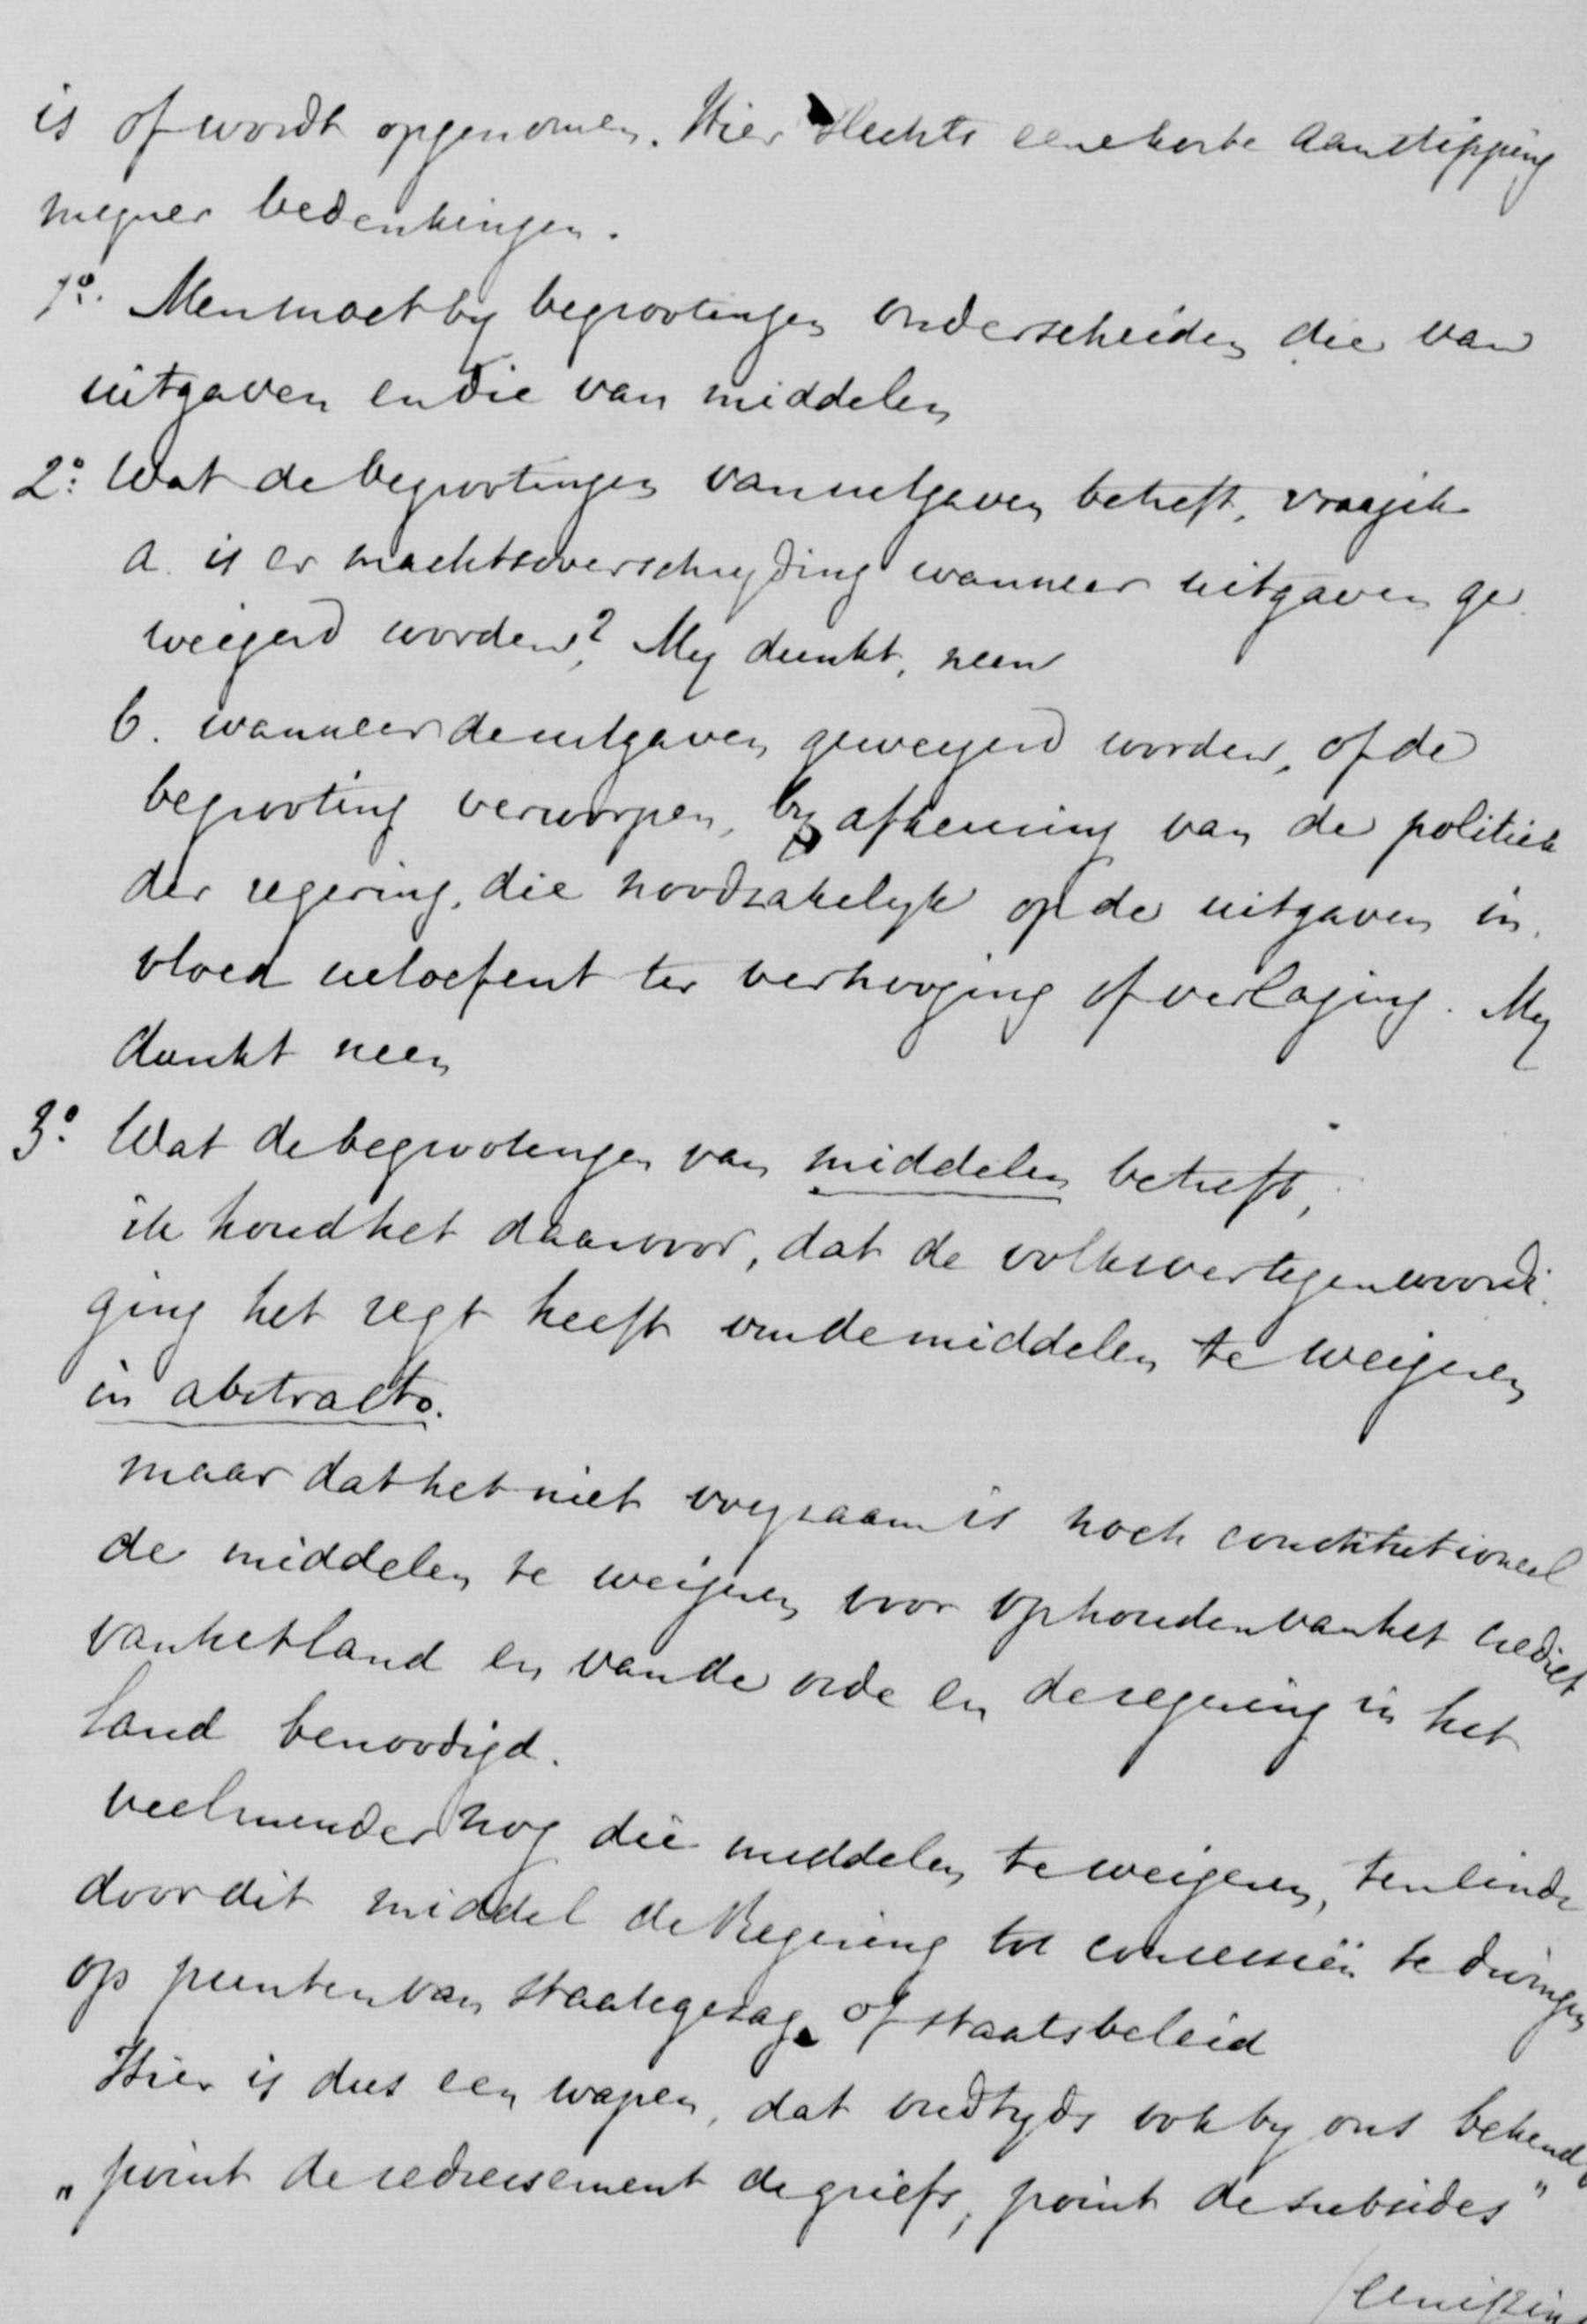 is of wordt opgenomen. Hier slechts eene korte aanstipping
mijner bedenkingen.
1º. Men moet by begrootingen onderscheiden die van
uitgaven en die van middelen
2º: Wat de begrootingen van uitgaven betreft, vraag ik
a. is er machtsoverschryding wanneer uitgaven ge
weigerd worden? My dunkt, neen
b. wanneer de uitgaven geweigerd worden, of de
begrooting verworpen, by afkeuring van de politiek
der regering, die noodzakelyk op de uitgaven in
vloed uitoefent ter verhooging of verlaging. My
dunkt neen
3º. Wat de begrootingen van middelen betreft,
ik houd het daarvoor, dat de volksvertegenwoordi
ging het regt heeft om de middelen te weigeren
in abstracto.
maar dat het niet oorzaam is noch constitutioneel
de middelen te weigeren voor ophouden van het crediet
van het land en van de orde en de regering in het
land benoodigd.
veel minder nog die middelen te weigeren, ten einde
door dit middel de Regering tot concessiën te dwingen
op punten van staatsgezag of staatsbeleid
Hier is dus een wapen, dat oudtyds ook by ons bekend
„point de redressement de griefs, point de subsides"